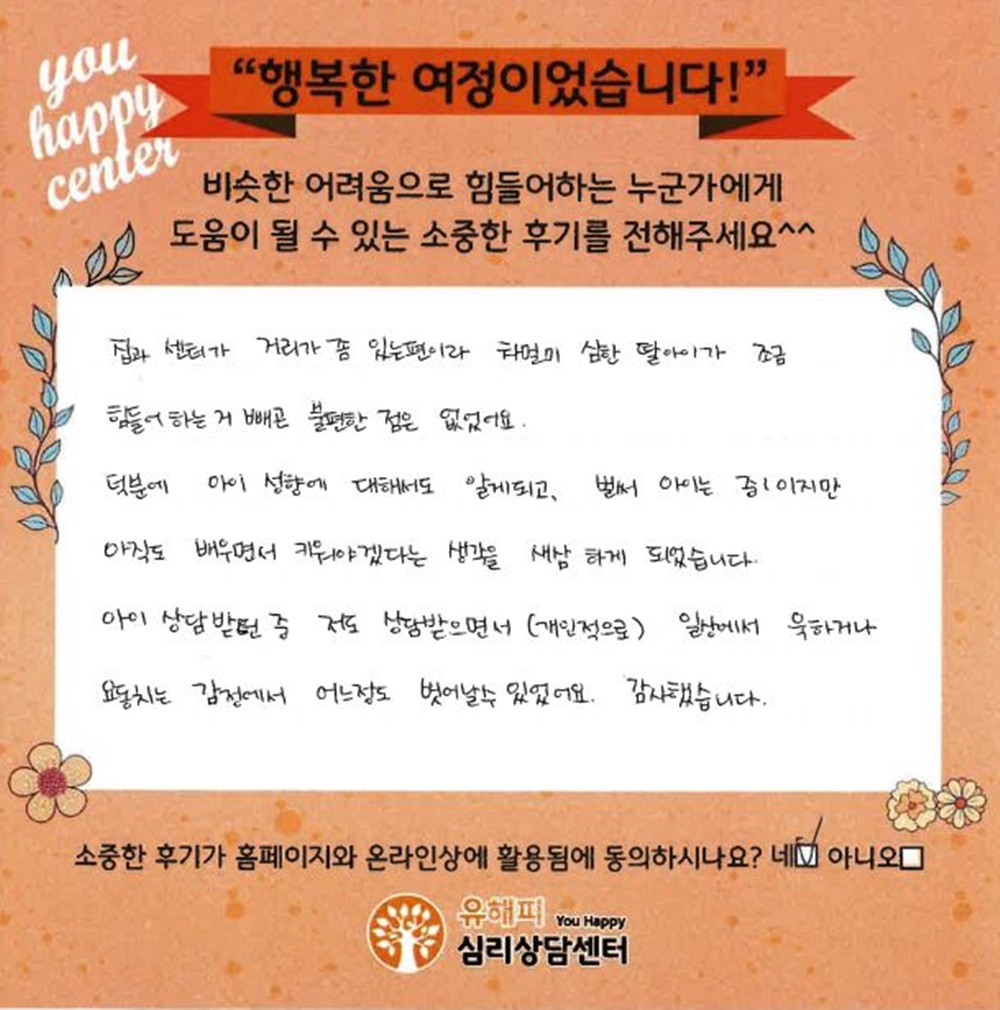 you
happy
center
“행복한 여정이었습니다!”
비슷한 어려움으로 힘들어하는 누군가에게
도움이 될 수 있는 소중한 후기를 전해주세요^^
집과 센터가 거리가 좀 있는편이라 차멀미 심한 딸아이가 조금
힘들어 하는거 빼곤 불편한 점은 없었어요.
덕분에 아이 성향에 대해서도 알게되고, 벌써 아이는 중1이지만
아직도 배우면서 키워야겠다는 생각을 새삼 하게 되었습니다.
아이 상담받던 중 저도 상담받으면서 (개인적으로) 일상에서 욱하거나
요동치는 감정에서 어느정도 벗어날수 있었어요. 감사했습니다.
소중한 후기가 홈페이지와 온라인상에 활용됨에 동의하시나요? 네☑ 아니오☐
유해피 You Happy
심리상담센터